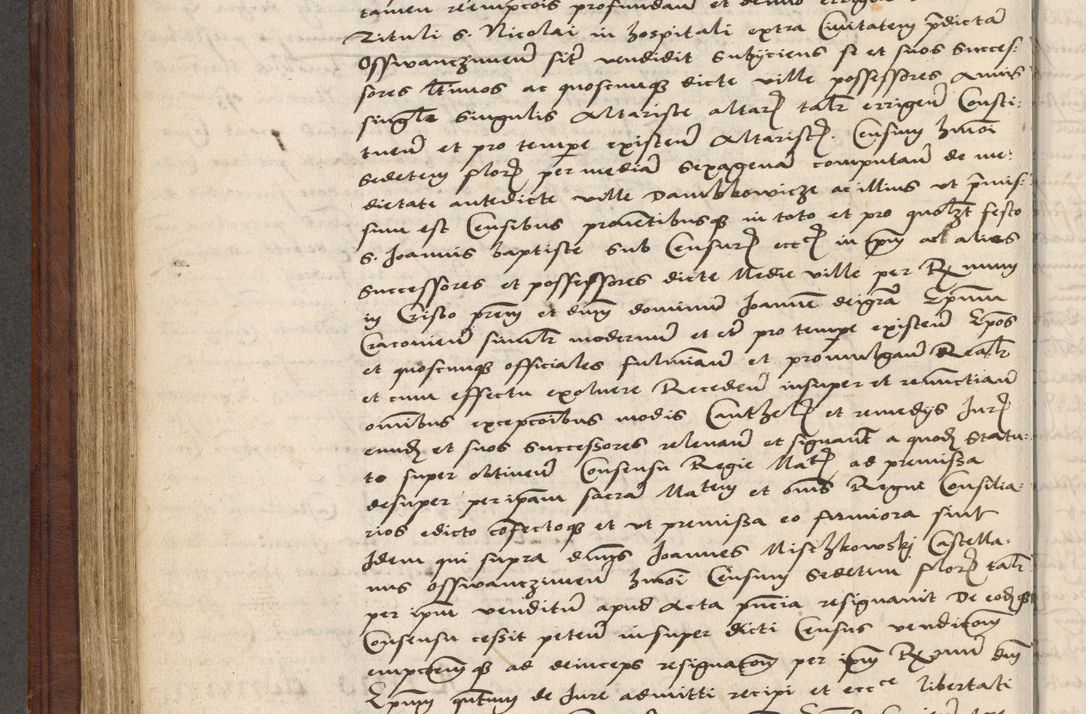 tamen reempcois profundau et demo errige
Tituli s. Nicolai in hospitali extra Ciuitatem p̄dictā
Osswanczimeñ sitꝰ vendidit Subijciens se et suos succes:
sores Ltimos ac quoscumqꝫ dicte ville possessores Annis
singłis singulis Altariste altarꝭ talr̄ errigeñ Consti:
tueñ et pro tempe existeñ Altaristꝭ. Censum hmōi
sedecem florꝭ per mediā sexagenā computanđ de me:
dietate antedicte ville Dambkowicze ac illius vt p̄mis:
sum est Censibus prouentibusqꝫ in toto et pro quolꝫt festo
S. Joannis baptiste sub Censurꝭ eccꝭ in ip̄m ac alios
successores et possessores dicte Medie ville per Rx̄ mum
in Cristo prem̄ et dn̄m dominum Joannē deigrā Ep̄um
Cracovieñ simulr̄ modernum et etꝰ pro tempe existeñ Ep̄os
et quoscumqꝫ officiales fulminanđ et promulganđ Realr̄
et cum effectu exoluere Recedeñ insuper et renunctianđ
om̄ibus excepcōibus modis Cauthelꝭ et remedijs Jurꝭ
eundꝫ et suos successores releuanđ et signanť a quodꝫ statu:
to super obtineñ Consensu Regie Matꝭ ad premissa
desuper per ipam sacrā Matem et om̄s Regni Consilia:
rios edicto cōfectoqꝫ et vt premissa eo firmiora sint
Idem qui supra dn̄s Joannes Misczkowskj Castella:
nus Osswanczimeñ hmōi Censum sedecim florꝭ talr̄
per ip̄m venditū apud Acta pn̄cia resignauit De eodꝫqꝫ
Consensu cessit peteñ insuper dicti Census vendicōm
empcōemqꝫ ac deinceps resignatōm per ip̄m Rx̄mum dn̄m
Ep̄um qn̄tum de Jure admitti recipi et eccᶜᵉ libertati